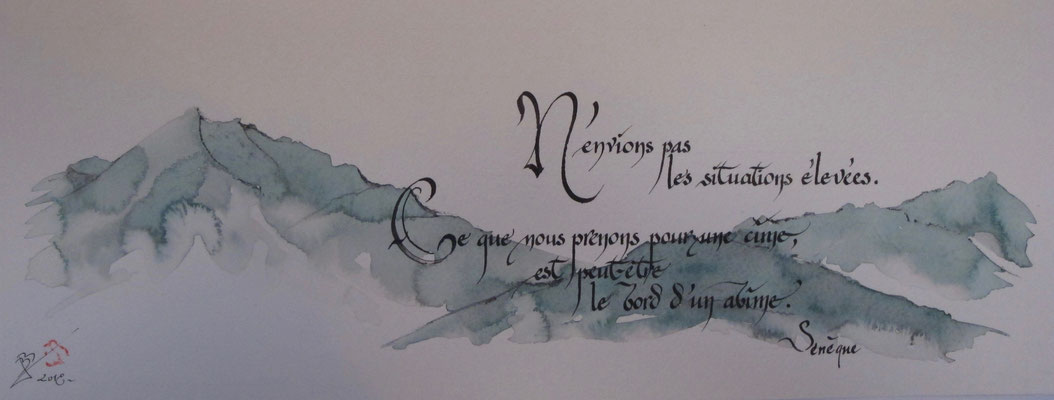 N'envions pas
les situations élevées.
Ce que nous prenons pour une cime,
est peut-être
le bord d'un abîme.
Sénèque